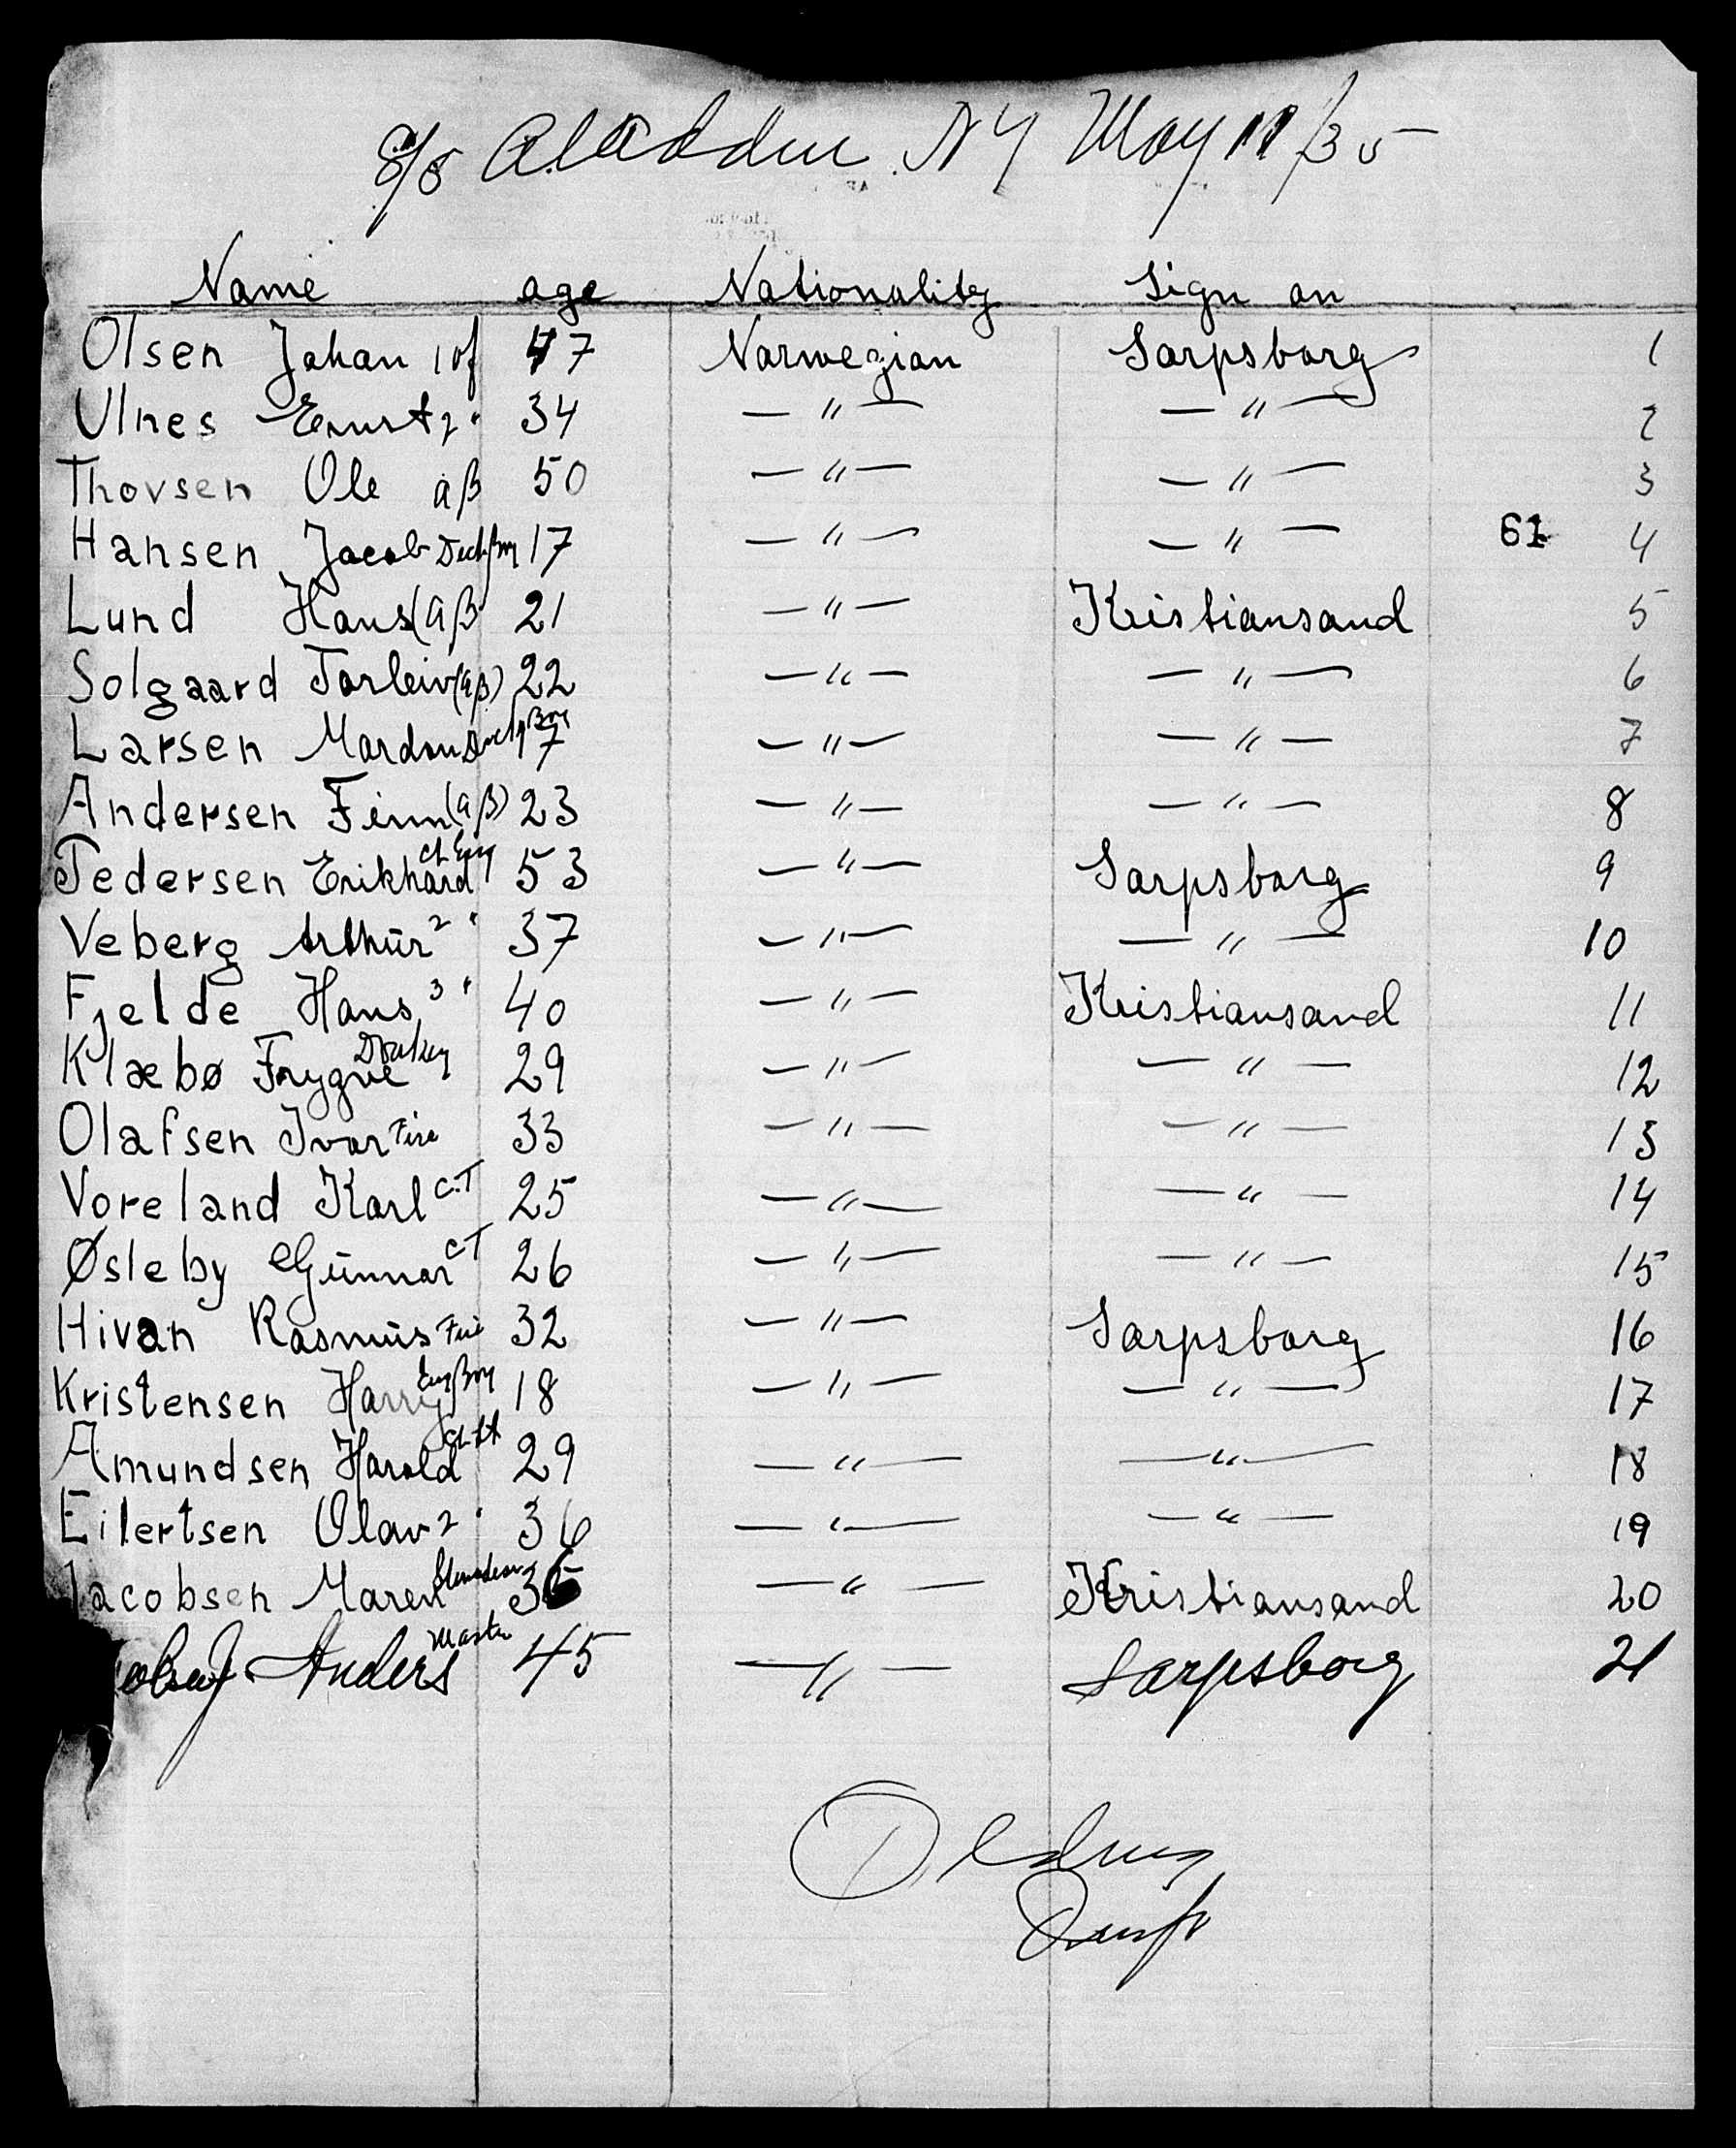 S/S Aladdin NY May 11/35
Name age Nationality Sign on
Olsen Johan 1 of 47 Norwegian Sarpsborg 1
Ulnes Ernst 2 " 34 — " — — " — 2
Thovsen Ole AB 50 — " — — " — 3
Hansen Jacob Deck Boy 17 — " — — " — 61 4
Lund Hans (AB 21 — " — Kristiansand 5
Solgaard Torleiv (AB) 22 — " — — " — 6
Larsen Mardon Deck Boy 17 — " — — " — 7
Andersen Finn (AB) 23 — " — — " — 8
Pedersen Erikhard ch Eng 53 — " — Sarpsborg 9
Veberg Arthur 2 " 37 — " — — " — 10
Fjelde Hans 3 " 40 — " — Kristiansand 11
Klæbø Trygve Donkey 29 — " — — " — 12
Olafsen Ivar Fire 33 — " — — " — 13
Voreland Karl C.T 25 — " — — " — 14
Øsleby Gunnar C.T 26 — " — — " — 15
Hivan Rasmus Fire 32 — " — Sarpsborg 16
Kristensen Harry Eng Boy 18 — " — — " — 17
Amundsen Harold 29 — " — — " — 18
Eilertsen Olav 2 " 36 — " — — " — 19
Jacobsen Maren 36 — " — Kristiansand 20
Anders Master 45 — " — Sarpsborg 21